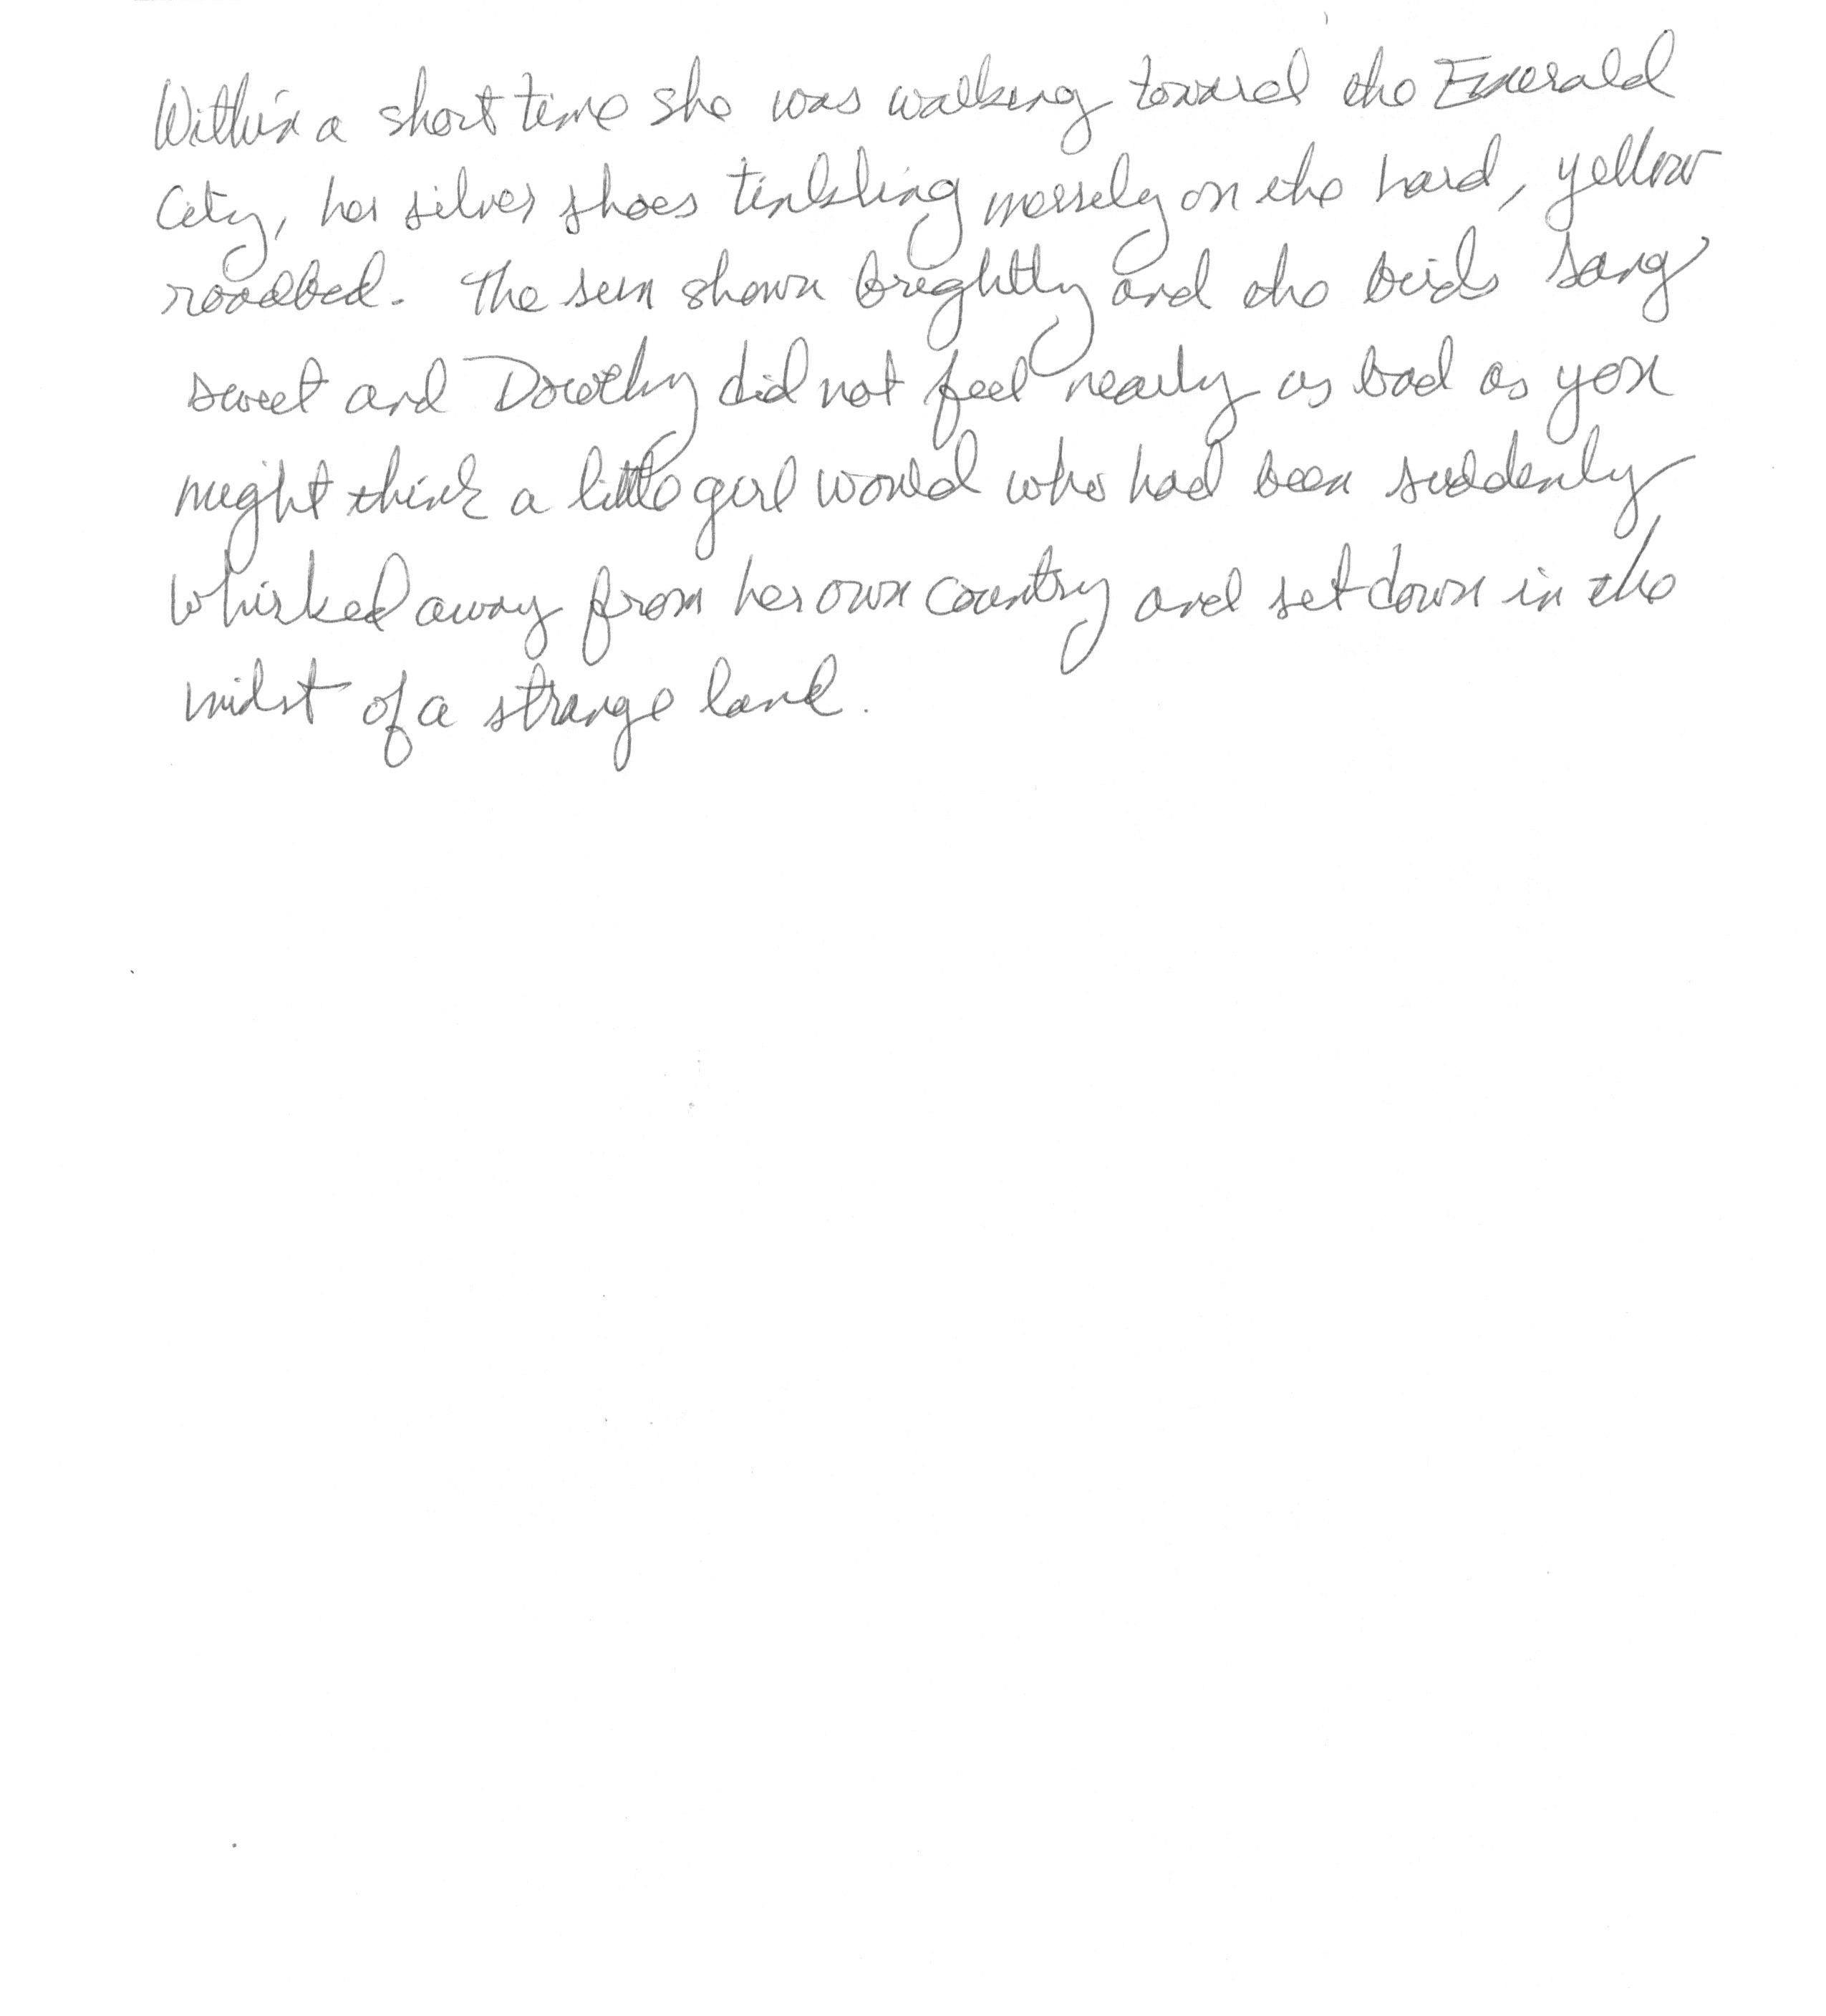 Within a short time she was walking toward the Emerald
City, her silver shoes tinkling merrily on the hard, yellow
roadbed. The sun shown brightly and the birds sang
sweet and Dorothy did not feel nearly as bad as you
might think a little girl would who had been suddenly
whisked away from her own country and set down in the
midst of a strange land.